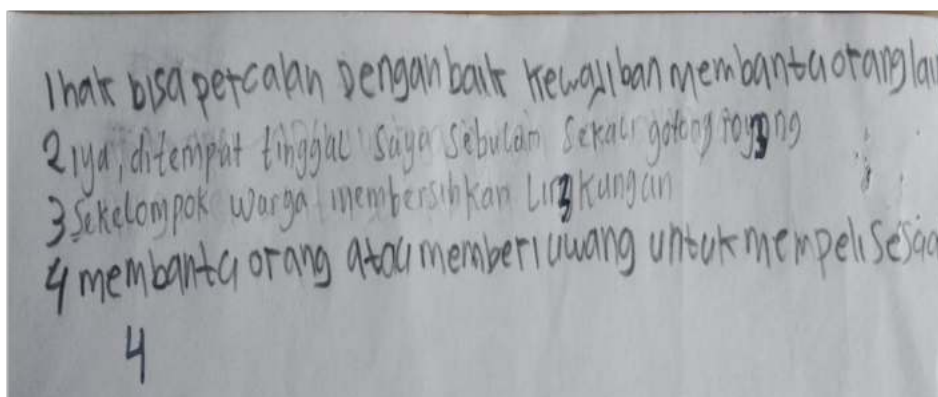 1 hak bisa percalan Dengan baik kewajiban membantu orang lai
2 iya, ditempat tinggal saya sebulan sekali gotong royong
3 Sekelompok warga membersihkan Lingkungan
4 membantu orang atau memberi uwang untuk mempeli sesua
4